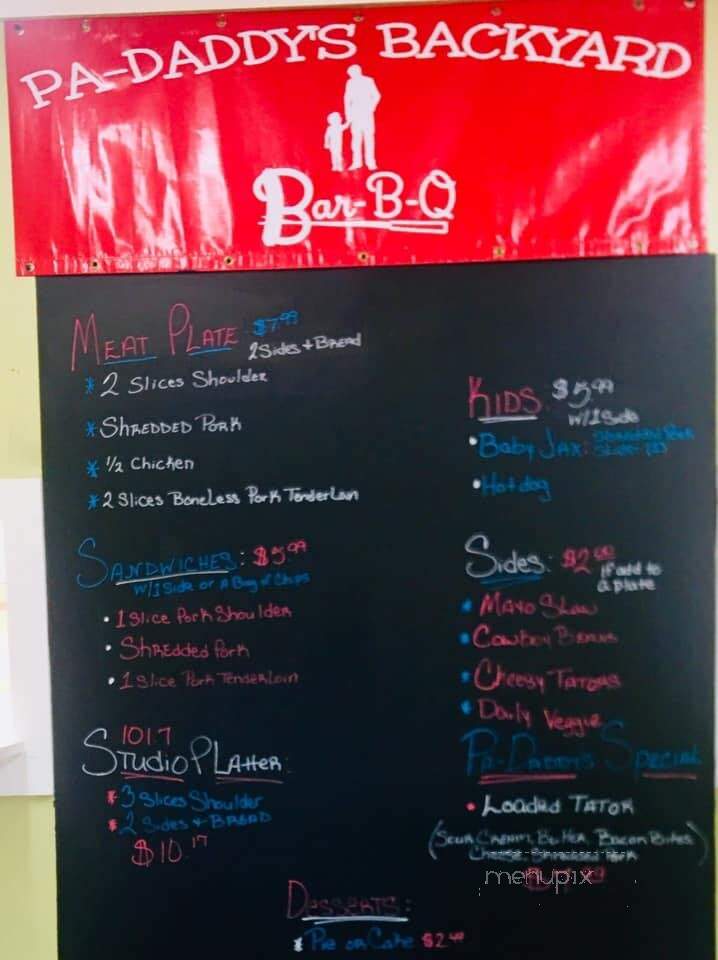 PA-DADDY'S BACKYARD
Bar-B-Q
MEAT PLATE $7.99
2 Sides + BREAD
* 2 Slices Shoulder
* SHREDDED PORK
* 1/2 Chicken
* 2 Slices Boneless Pork Tenderloin
SANDWICHES: $5.99
W/1 Side or A Bag of Chips
• 1 Slice Pork Shoulder
• Shredded Pork
• 1 Slice Pork Tenderloin
1017
STUDIO PLAtter:
* 3 Slices Shoulder
* 2 Sides + BREAD
$10.17
KIDS $5.99
W/1 Side
• Baby JAX:
• Hotdog
Sides: $2.00
If add to
a plate
* Mayo Slaw
* Cowboy Beans
* Cheesy TATORS
* Daily Veggie
PA-DADDY'S Special
• Loaded TATOR
(Sour Cream, Butter, Bacon
Cheese, Shredded Pork
menupix
Desserts:
* Pie or Cake $2.49